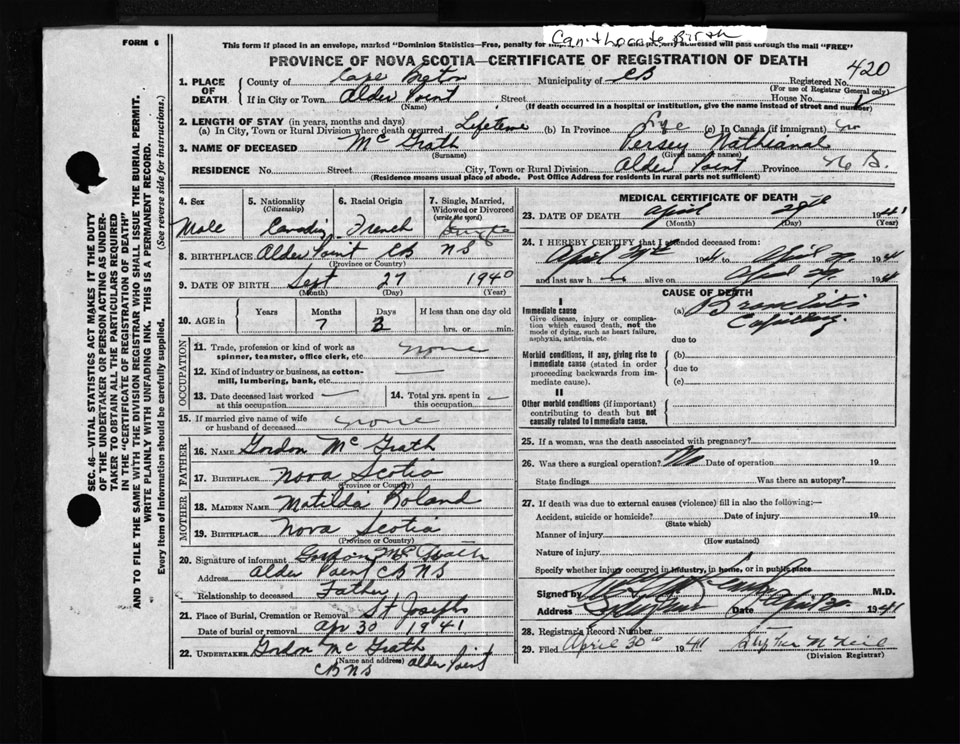 FORM 6
This form if placed in an envelope, marked "Dominion Statistics—Free, penalty for addressed will pass through the mail "FREE"
PROVINCE OF NOVA SCOTIA—CERTIFICATE OF REGISTRATION OF DEATH
420
1. PLACE OF DEATH County of Cape Breton Municipality of CB Registered No.
(For use of Registrar General only)
If in City or Town Alder Point Street House No.
(Name) (If death occurred in a hospital or institution, give the name instead of street and number)
2. LENGTH OF STAY (in years, months and days)
(a) In City, Town or Rural Division where death occurred Lifetime (b) In Province Life (c) In Canada (if immigrant)
3. NAME OF DECEASED Mc Grath Persey Nathianal
(Surname) (Given name or names)
RESIDENCE No. Street City, Town or Rural Division Alder Point Province
(Residence means usual place of abode. Post Office Address for residents in rural parts not sufficient)
4. Sex 5. Nationality (Citizenship) 6. Racial Origin 7. Single, Married, Widowed or Divorced (write the word)
Male French Single
8. BIRTHPLACE Alder Point CB NS
(Province or Country)
9. DATE OF BIRTH Sept 27 1940
(Month) (Day) (Year)
10. AGE in Years Months Days If less than one day old
7 3 hrs. or min.
OCCUPATION
11. Trade, profession or kind of work as spinner, teamster, office clerk, etc. none
12. Kind of industry or business, as cotton-mill, lumbering, bank, etc.
13. Date deceased last worked at this occupation 14. Total yrs. spent in this occupation
15. If married give name of wife or husband of deceased none
FATHER
16. NAME Gordon Mc Grath
17. BIRTHPLACE Nova Scotia
(Province or Country)
MOTHER
18. MAIDEN NAME Matilda Boland
19. BIRTHPLACE Nova Scotia
(Province or Country)
20. Signature of informant Gordon Mc Grath
Address Alder Point CB NS
Relationship to deceased Father
21. Place of Burial, Cremation or Removal St Josephs
Date of burial or removal Apr 30 1941
22. UNDERTAKER Gordon Mc Grath
(Name and address) Alder Point
CB NS
MEDICAL CERTIFICATE OF DEATH
23. DATE OF DEATH April 29th 1941
(Month) (Day) (Year)
24. I HEREBY CERTIFY that I attended deceased from:
April 29th 1941 to April 29 1941
and last saw h alive on April 29 1941
CAUSE OF DEATH
I
Immediate cause
Give disease, injury or complication which caused death, not the mode of dying, such as heart failure, asphyxia, asthenia, etc.
(a) Capillary
due to
Morbid conditions, if any, giving rise to immediate cause (stated in order proceeding backwards from immediate cause).
(b)
due to
(c)
II
Other morbid conditions (if important) contributing to death but not causally related to immediate cause.
25. If a woman, was the death associated with pregnancy?
26. Was there a surgical operation? No Date of operation 19
State findings Was there an autopsy?
27. If death was due to external causes (violence) fill in also the following:—
Accident, suicide or homicide? Date of injury 19
(State which)
Manner of injury
(How sustained)
Nature of injury
Specify whether injury occurred in industry, in home, or in public place
Signed by M.D.
Address Date April 30 1941
28. Registrar's Record Number
29. Filed April 30th 1941
(Division Registrar)
SEC. 46—VITAL STATISTICS ACT MAKES IT THE DUTY
OF THE UNDERTAKER OR PERSON ACTING AS UNDER-
TAKER TO OBTAIN ALL THE PARTICULARS REQUIRED
IN THE "CERTIFICATE OF REGISTRATION OF DEATH"
AND TO FILE THE SAME WITH THE DIVISION REGISTRAR WHO SHALL ISSUE THE BURIAL PERMIT.
WRITE PLAINLY WITH UNFADING INK. THIS IS A PERMANENT RECORD.
Every item of information should be carefully supplied. (See reverse side for instructions.)